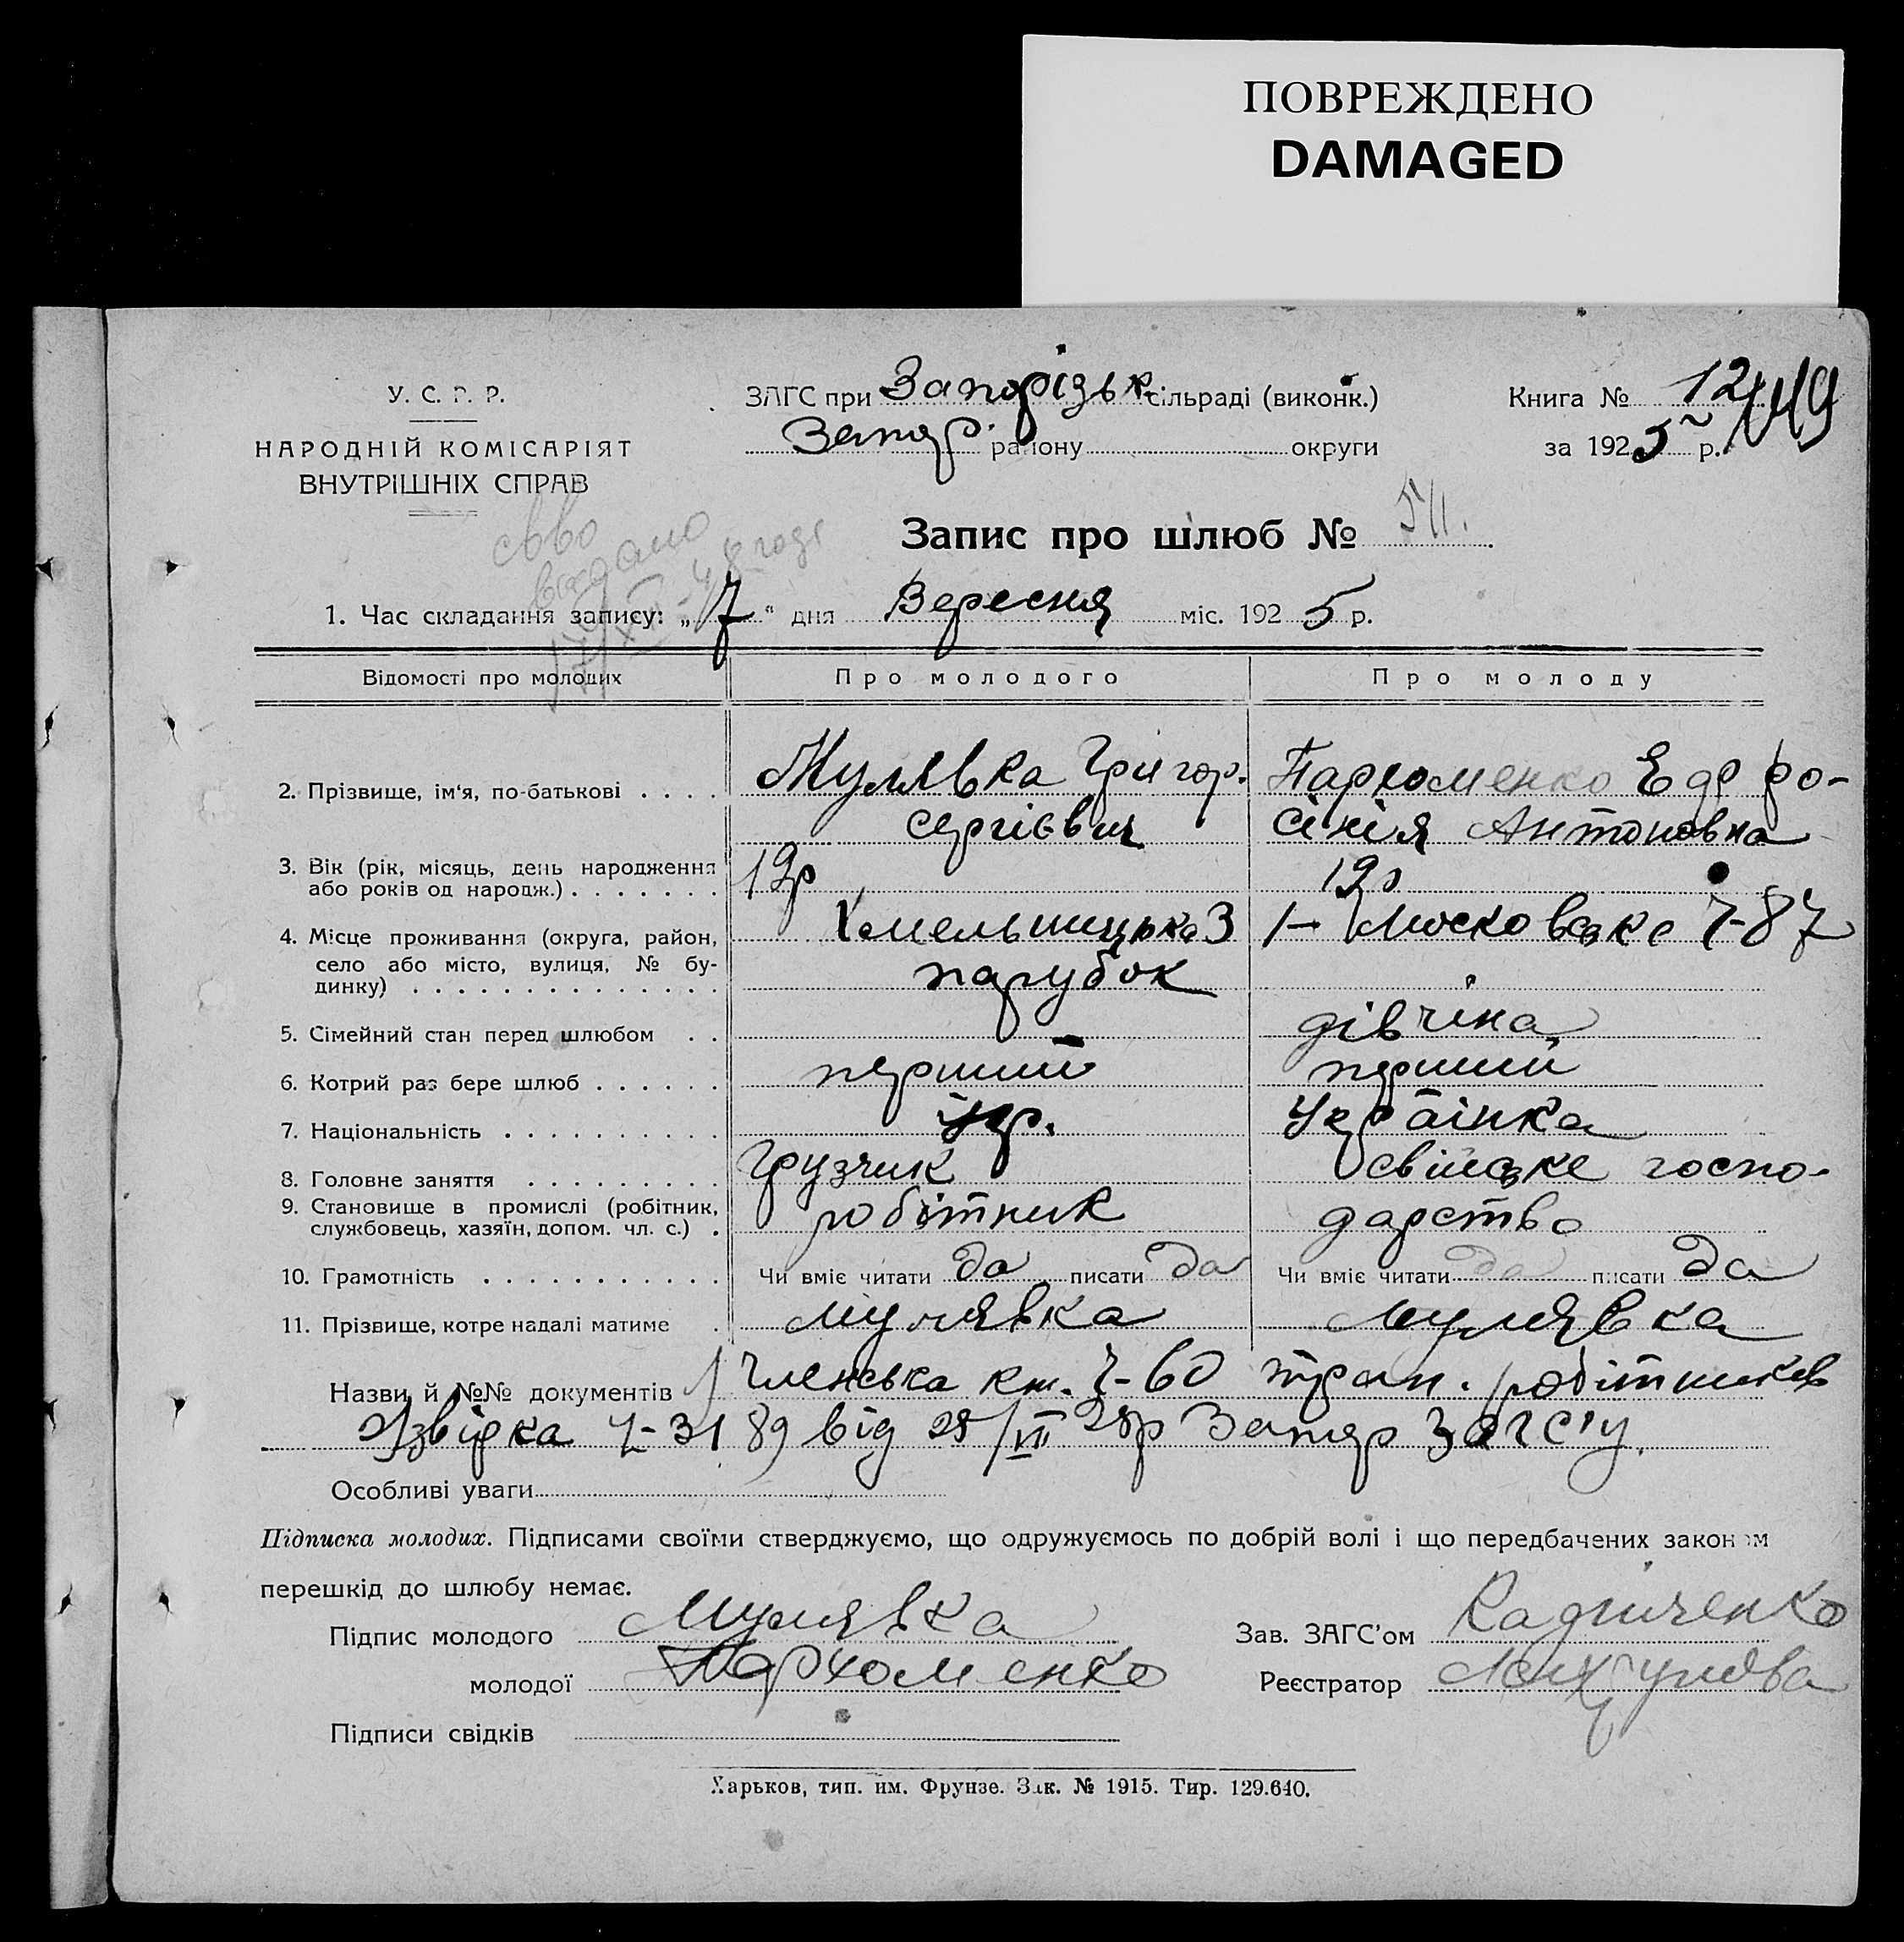 ПОВРЕЖДЕНО
DAMAGED
У. С. Р. Р.
НАРОДНІЙ КОМІСАРІЯТ
ВНУТРІШНІХ СПРАВ
ЗАГС при Запорізьк сільраді (виконк.)
Запор. району округи
Книга № 12
за 1925 р.
свво
видано
Запис про шлюб № 511.
1. Час складання запису: „7“ дня Вересня міс. 1925 р.
Відомості про молодих Про молодого Про молоду
2. Прізвище, ім'я, по-батькові . . . . Мулявка Григор. Пархоменко Евфро-
Сергієвич сінія Антоновна
3. Вік (рік, місяць, день народження
або років од народж.) . . . . . . . 19р 19р
4. Місце проживання (округа, район, Хмельницька 3 Московська 87
село або місто, вулиця, № бу-
динку) . . . . . . . . . . . . . . . парубок
5. Сімейний стан перед шлюбом . . дівчина
6. Котрий раз бере шлюб . . . . . . перший перший
7. Національність . . . . . . . . . . укр. Українка
8. Головне заняття . . . . . . . . . Грузчик свійське госпо-
9. Становище в промислі (робітник,
службовець, хазяїн, допом. чл. с.) . робітник дарство
10. Грамотність . . . . . . . . . . . Чи вміє читати да писати да Чи вміє читати да писати да
11. Прізвище, котре надалі матиме . Мулявка Мулявка
Назви й №№ документів Членська кн. Ч-60 тран. робітників
Узвідка Ч-3189 від 25/VII 25р Запор ЗАГС'у.
Особливі уваги
Підписка молодих. Підписами своїми стверджуємо, що одружуємось по добрій волі і що передбачених законом
перешкід до шлюбу немає.
Підпис молодого Мулявка Зав. ЗАГС'ом
молодої Пархоменко Реєстратор
Підписи свідків
Харьков, тип. им. Фрунзе. Зак. № 1915. Тир. 129.640.